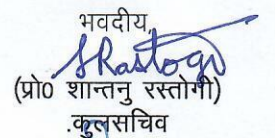 भवदीय,
SRastogi
(प्रो0 शान्तनु रस्तोगी)
.कुलसचिव